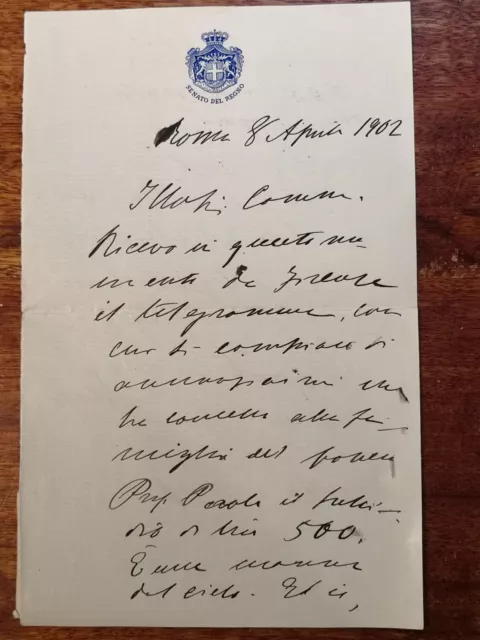 SENATO DEL REGNO
Roma 8 Aprile 1902
Illmo Sig. Comm.
Ricevo in questo mo-
mento da Firenze
il telegramma, con
cui si compiace di
annunziarmi che
ha concesso alla fa-
miglia del povero
Prof. il sussi-
dio di lire 500.
È una manna
del cielo. Ed io,